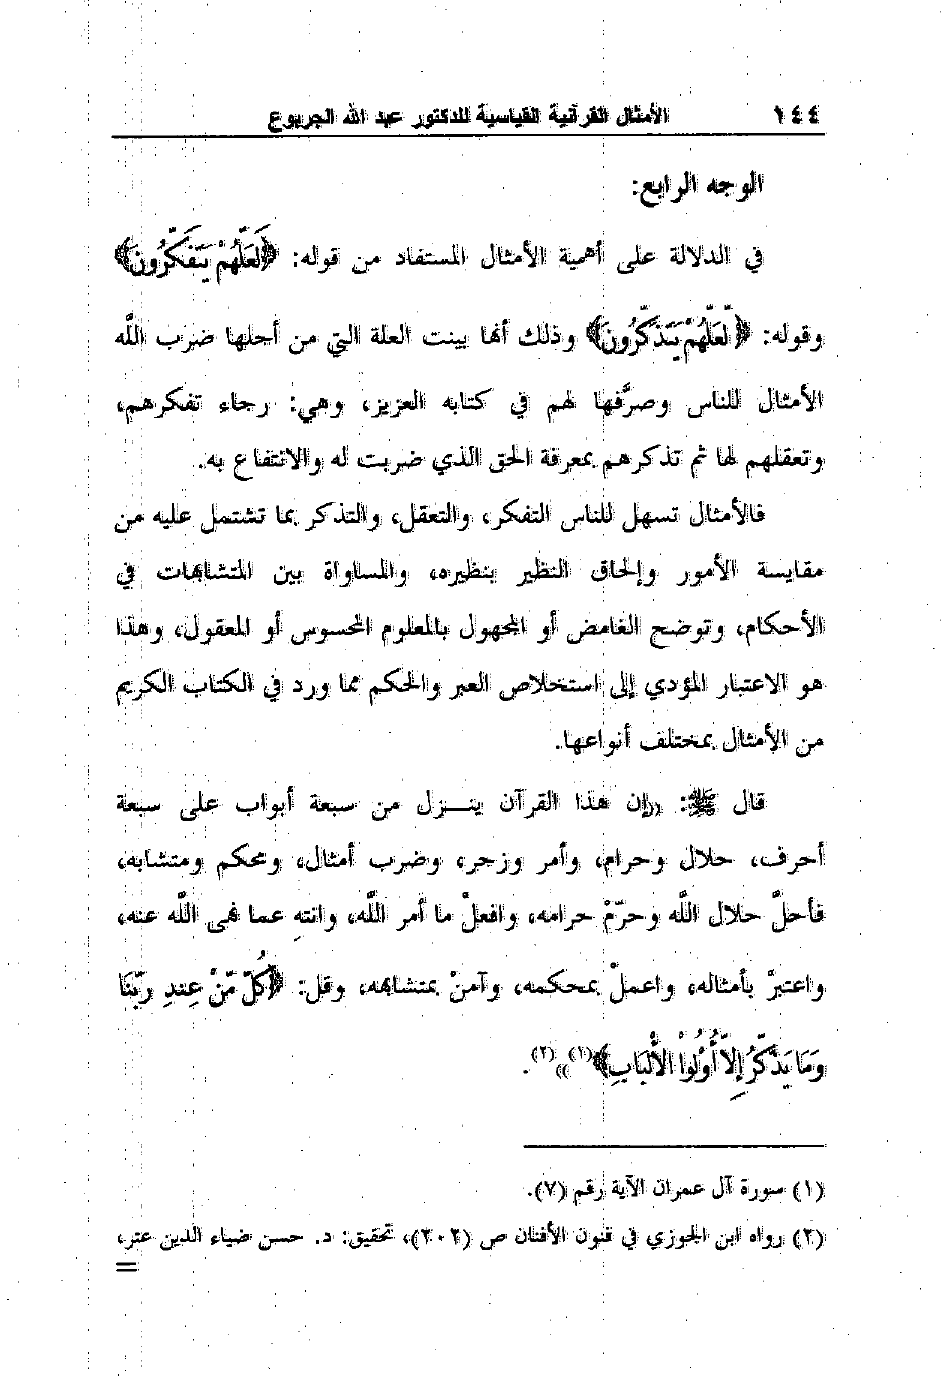 ١٤٤ الأمثال القرآنية القياسية للدكتور عبد الله الجربوع
الوجه الرابع:
في الدلالة على أهمية الأمثال المستفاد من قوله: ﴿لَعَلَّهُمْ يَتَفَكَّرُونَ﴾
وقوله: ﴿لَّعَلَّهُمْ يَتَذَكَّرُونَ﴾ وذلك أنها بينت العلة التي من أجلها ضرب اللَّه
الأمثال للناس وصرَّفها لهم في كتابه العزيز، وهي: رجاء تفكرهم،
وتعقلهم لها ثم تذكرهم بمعرفة الحق الذي ضربت له والانتفاع به.
فالأمثال تسهل للناس التفكر، والتعقل، والتذكر بما تشتمل عليه من
مقايسة الأمور وإلحاق النظير بنظيره، والمساواة بين المتشابهات في
الأحكام، وتوضح الغامض أو المجهول بالمعلوم المحسوس أو المعقول، وهذا
هو الاعتبار المؤدي إلى استخلاص العبر والحكم مما ورد في الكتاب الكريم
من الأمثال بمختلف أنواعها.
قال ﷺ: ((إن هذا القرآن ينـــزل من سبعة أبواب على سبعة
أحرف، حلال وحرام، وأمر وزجر، وضرب أمثال، ومحكم ومتشابه،
فأحلَّ حلال اللَّه وحرّمْ حرامه، وافعلْ ما أمر اللَّه، وانتهِ عما نهى اللَّه عنه،
واعتبرْ بأمثاله، واعملْ بمحكمه، وآمنْ بمتشابهه، وقل: ﴿كُلٌّ مِّنْ عِندِ رَبِّنَا
وَمَا يَذَّكَّرُ إِلاَّ أُوْلُواْ الأَلْبَابِ﴾(١))) (٢).
(١) سورة آل عمران الآية رقم (٧).
(٢) رواه ابن الجوزي في فنون الأفنان ص (٢٠٢)، تحقيق: د. حسن ضياء الدين عتر،
=